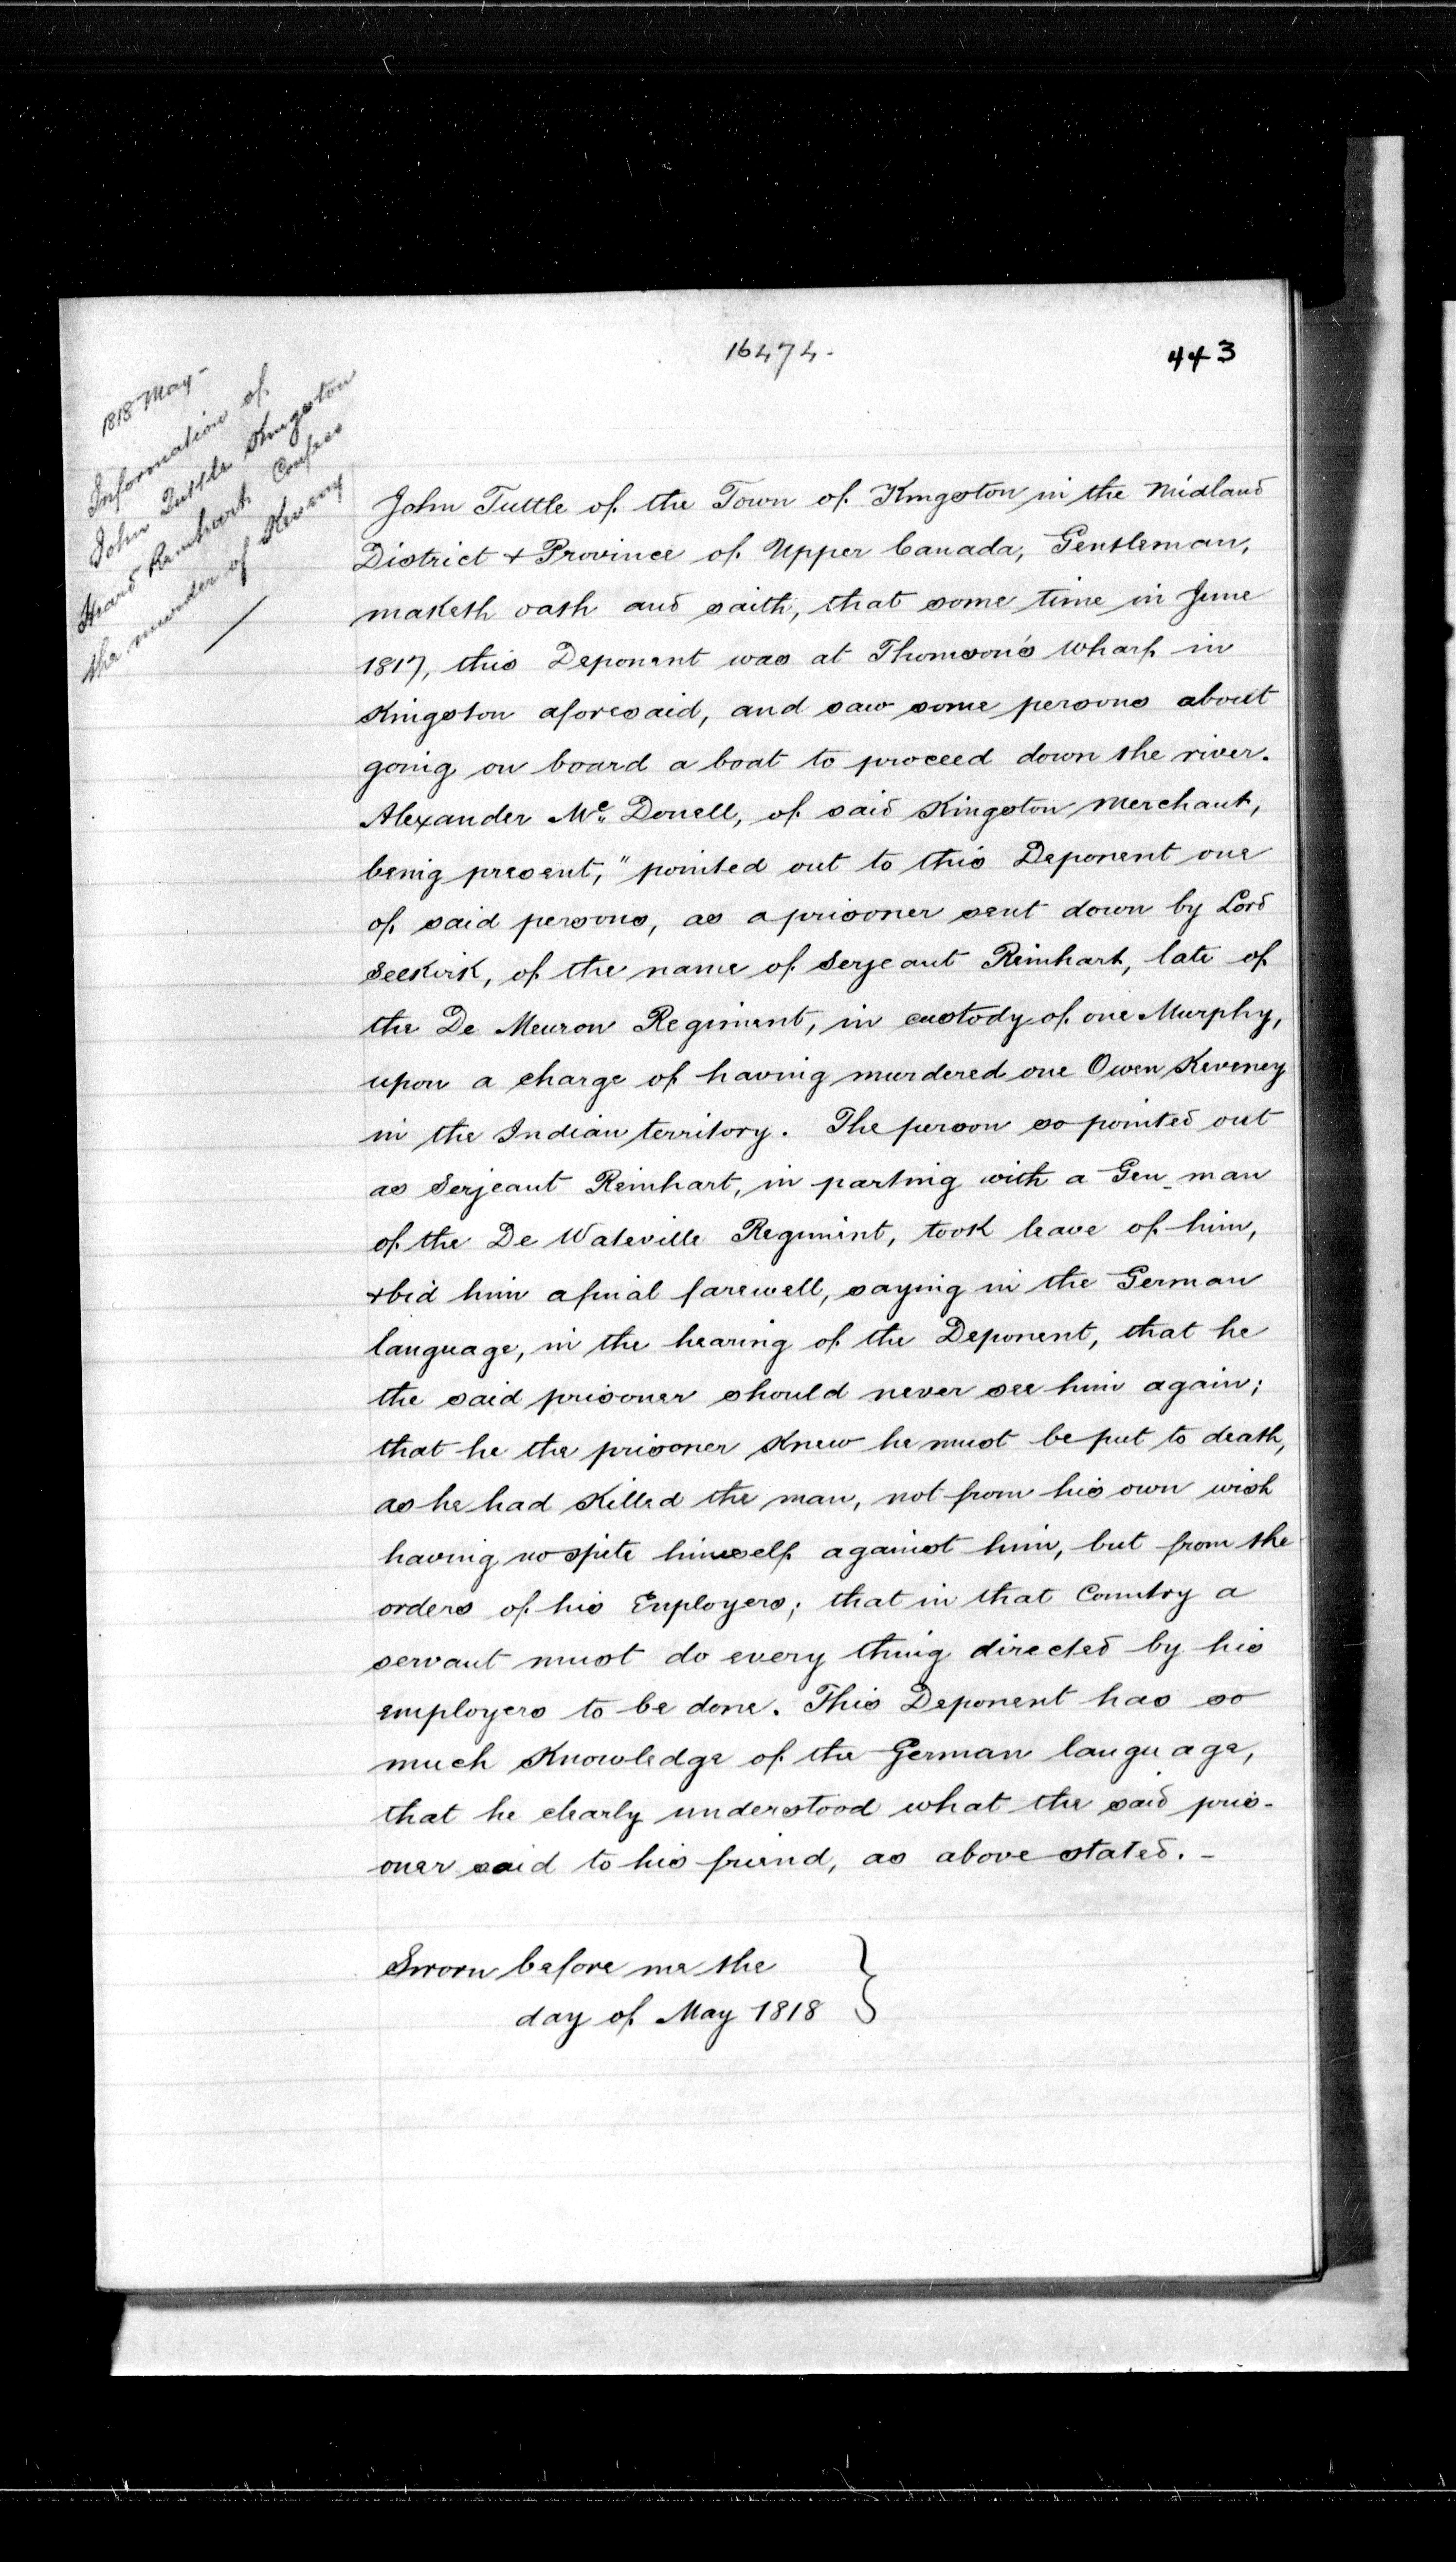 16474.
443
1818 May -
Information of
John Tuttle Kingston
Heard Reinhart Confess
the murder of Keveny
John Tuttle of the Town of Kingston in the Midland
District & Province of Upper Canada, Gentleman,
maketh oath and saith, that some time in June
1817, this Deponent was at Thomson's Wharf in
Kingston aforesaid, and saw some persons about
going on board a boat to proceed down the river.
Alexander Mc Donell, of said Kingston Merchant,
being present," pointed out to this Deponent one
of said persons, as a prisoner sent down by Lord
Selkirk, of the name of Serjeant Reinhart, late of
the De Meuron Regiment, in custody of one Murphy,
upon a charge of having murdered one Owen Keveney
in the Indian territory. The person so pointed out
as Serjeant Reinhart, in parting with a Gen-man
of the De Wateville Regiment, took leave of him,
& bid him a final farewell, saying in the German
language, in the hearing of the Deponent, that he
the said prisoner should never see him again;
that he the prisoner knew he must be put to death,
as he had killed the man, not from his own wish
having no spite himself against him, but from the
orders of his Employers; that in that Country a
servant must do every thing directed by his
employers to be done. This Deponent has so
much knowledge of the German language,
that he clearly understood what the said pris-
oner said to his friend, as above stated. -
Sworn before me the }
day of May 1818